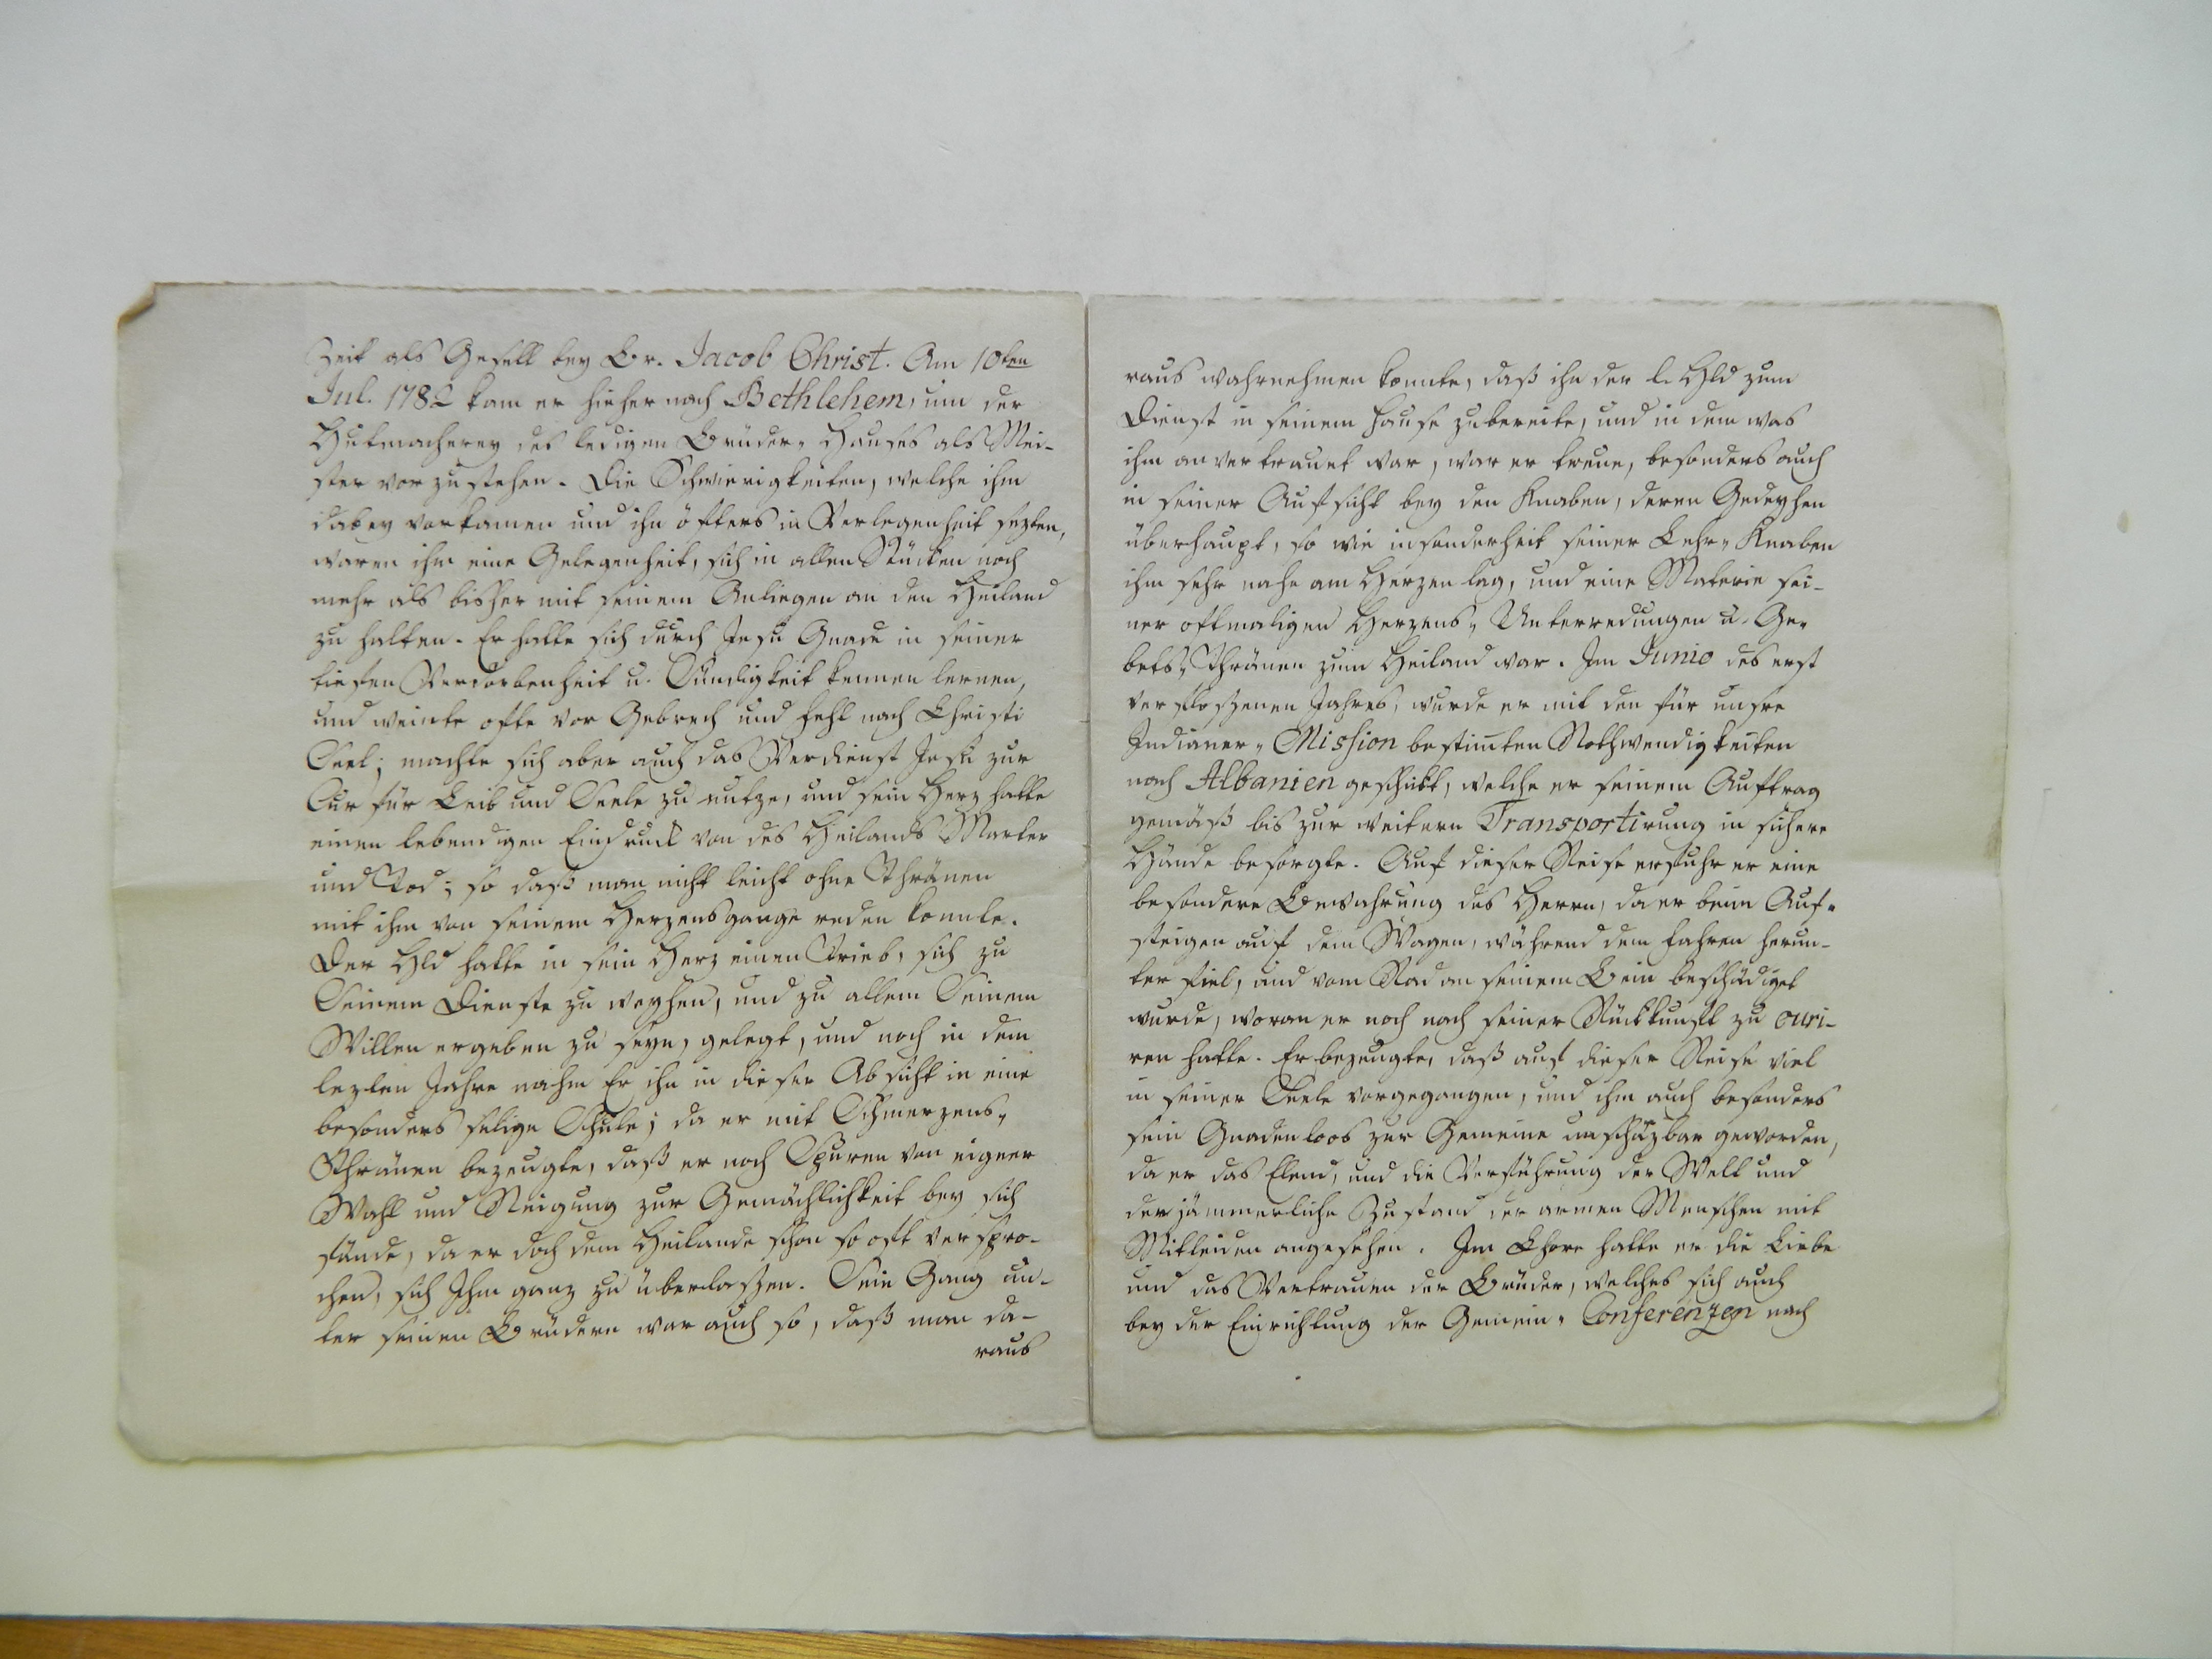 Zeit als Gesell bey Br. Jacob Christ. Am 10ten
Jul. 1782 kam er hieher nach Bethlehem, um der
Hutmacherey des ledigen Brüder-Hauses als Mei-
ster vorzustehen. Die Schwierigkeiten, welche ihm
dabey vorkamen und ihn öfters in Verlegenheit sezten,
waren ihm eine Gelegenheit, sich in allen Stücken noch
mehr als bisher mit seinem Anliegen an den Heiland
zu halten. Er hatte sich durch Jesu Gnade in seiner
tiefen Verdorbenheit u. Sündigkeit kennen lernen,
und weinte ofte vor Gebrech und Fehl nach Christi
Seel; machte sich aber auch das Verdienst Jesu zur
Cur für Leib und Seele zu nutze, und sein Herz hatte
einen lebendigen Eindruck von des Heilands Marter
und Tod; so daß man nicht leicht ohne Thränen
mit ihm von seinem Herzensgange reden konnte.
Der Hld hatte in sein Herz einen Trieb, sich zu
Seinem Dienste zu weyhen, und zu allem Seinem
Willen ergeben zu seyn, gelegt, und noch in dem
lezten Jahre nahm Er ihn in dieser Absicht in eine
besonders selige Schule; da er mit Schmerzens-
Thränen bezeugte, daß er noch Spuren von eigner
Wahl und Neigung zur Gemächlichkeit bey sich
fände, da er doch dem Heilande schon so oft verspro-
chen, sich Ihm ganz zu überlaßen. Sein Gang un-
ter seinen Brüdern war auch so, daß man da-
raus
raus wahrnehmen konnte, daß ihn der l. Hld zum
Dienst in seinem Hause zubereite, und in dem was
ihm anvertrauet war, war er treue, besonders auch
in seiner Aufsicht bey den Knaben, deren Gedeyhen
überhaupt, so wie insonderheit seiner Lehr-Knaben
ihm sehr nahe am Herzen lag, und eine Materie sei-
ner oftmaligen Herzens-Unterredungen u. Ge-
bets-Thränen zum Heiland war. Im Junio des erst
verfloßenen Jahres, wurde er mit den für unsre
Indianer-Mission bestimten Nothwendigkeiten
nach Albanien geschikt, welche er seinem Auftrag
gemäß bis zur weitern Transportirung in sichere
Hände besorgte. Auf dieser Reise erfuhr er eine
besondere Bewahrung des Herrn, da er beim Auf-
steigen auf dem Wagen, während dem fahren herun-
ter fiel, und vom Rad an seinem Bein beschädiget
wurde, woran er noch nach seiner Rückkunft zu curi-
ren hatte. Er bezeugte, daß auf dieser Reise viel
in seiner Seele vorgegangen, und ihm auch besonders
sein Gnadenloos zur Gemeine unschäzbar geworden,
da er das Elend, und die Verführung der Welt und
der jämmerliche Zustand der armen Menschen mit
Mitleiden angesehen. Im Chore hatte er die Liebe
und das Vertrauen der Brüder, welches sich auch
bey der Einrichtung der Gemein-Conferenzen nach